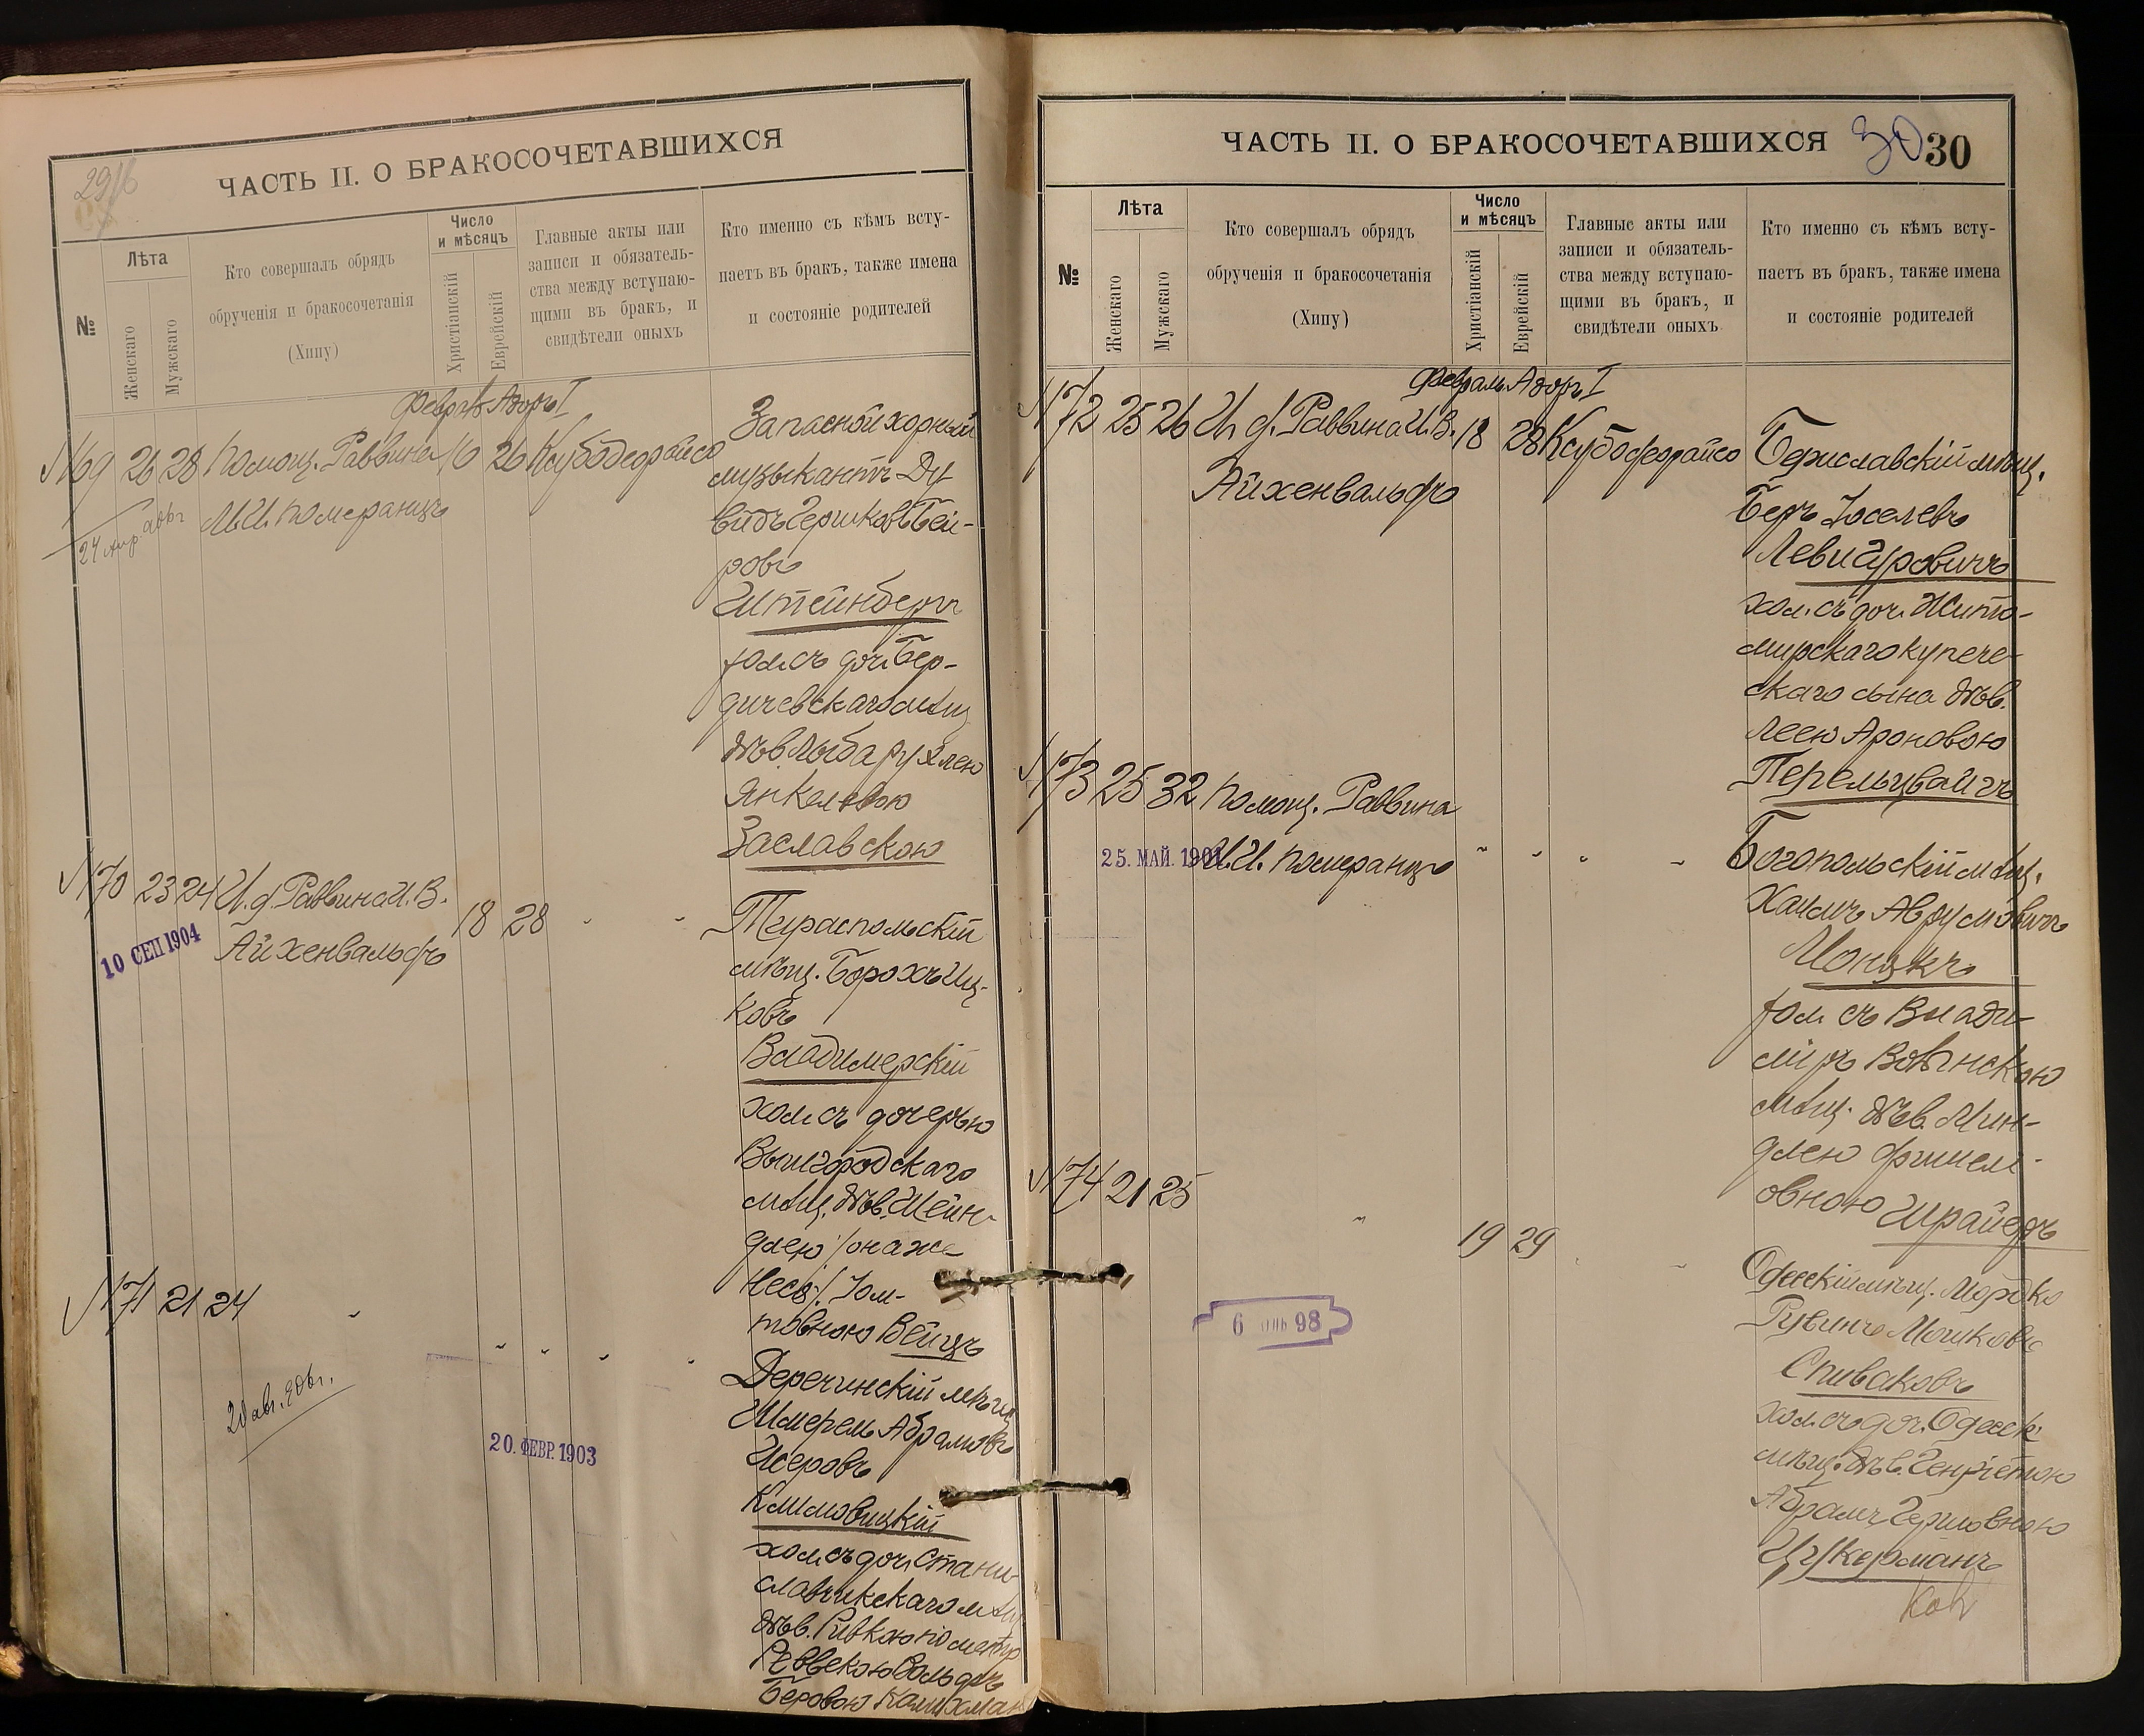 ЧАСТЬ II. О БРАКОСОЧЕТАВШИХСЯ
№
Лѣта
Женскаго
Мужскаго
Кто совершалъ обрядъ
обрученія и бракосочетанія
(Хипу)
Число
и мѣсяцъ
Христіанскій
Еврейскій
Главные акты или
записи и обязатель-
ства между вступаю-
щими въ бракъ, и
свидѣтели оныхъ
Кто именно съ кѣмъ всту-
паетъ въ бракъ, также имена
и состояніе родителей
Адоръ I
169 26 28 Помощ. Раввина
26
Померанцъ
Запасной хорный
музыкантъ Ду-
видъ Гершковъ Бей-
ровъ
Штейнбергъ
хол. съ доч. Бер-
дичевскаго мѣщ.
дѣв.
Янкелевою
Заславскою
170 23 24 И. д. Раввина И. В.
Айхенвальдъ
18 28
10 СЕП 1904
Тираспольскій
мѣщ. Борохъ Иц-
ковъ
Владимерскій
хол. съ дочерью
Вышгородскаго
мѣщ. дѣв. Шейн-
длею /она же
Неся/ Іом-
товною Вейцъ
171 21 24
20. ФЕВР. 1903
Деречинскій мѣщ.
Шмерель Абрамовъ
Исеровъ
Климовицкій
хол. съ доч. Стани-
славчикскаго мѣщ
дѣв. Ривкою по метр
Ревекою Вольфъ
Беровою
ЧАСТЬ II. О БРАКОСОЧЕТАВШИХСЯ
30 30
№
Лѣта
Женскаго
Мужскаго
Кто совершалъ обрядъ
обрученія и бракосочетанія
(Хипу)
Число
и мѣсяцъ
Христіанскій
Еврейскій
Главные акты или
записи и обязатель-
ства между вступаю-
щими въ бракъ, и
свидѣтели оныхъ
Кто именно съ кѣмъ всту-
паетъ въ бракъ, также имена
и состояніе родителей
Февраль Адоръ I
172 25 26 И. д. Раввина И. В. 18 28
Айхенвальдъ
Бериславскій мѣщ.
Беръ Іоселевъ
Левигуровичъ
хол. съ доч. Жито-
мирскаго купече-
скаго сына дѣв.
Леею Ароновою
Перельцвайгъ
173 25 32 Помощ. Раввина
25. МАЙ. 1901
Померанцъ
Богопольскій мѣщ.
Хаимъ Аврумовичъ
хол. съ Влади-
міръ Волынскою
мѣщ. дѣв. Мин-
длею Фишел-
овною Шрайеръ
174 21 25
19 29
98
Одесскій мѣщ. Мордко
Рувинъ Мошковъ
Спиваковъ
хол. съ доч. Одесск.
мѣщ. дѣв. Генріетою
Абрамъ Гершовною
Цукерманъ